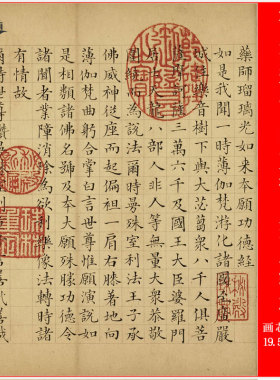 藥師瑠璃光如來本願功德經
如是我聞一時薄伽梵遊化諸國至廣嚴
城住樂音樹下與大苾蒭衆八千人俱菩
薩摩訶薩三萬六千及國王大臣婆羅門
居士天龍八部人非人等無量大衆恭敬
圍繞而為說法爾時曼殊室利法王子承
佛威神從座而起偏袒一肩右膝著地向
薄伽梵曲躬合掌白言世尊惟願演說如
是相類諸佛名號及本大願殊勝功德令
諸聞者業障消除為欲利樂像法轉時諸
有情故
爾時世尊讚
画芯
19.5